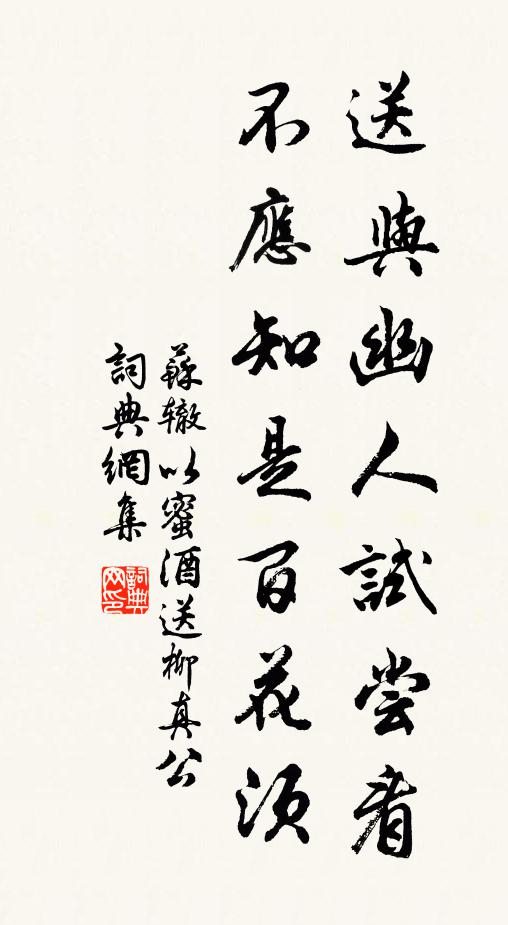 送與幽人試尝看
不應知是百花须
蘇辙以蜜酒送柳真公
詞典網集
詞典网印